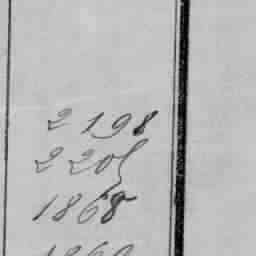 2198
2205
1868